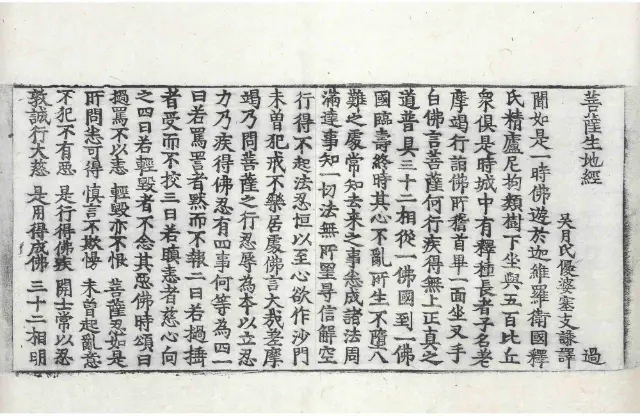 菩薩生地經
吳月氏優婆塞支謙譯 過
聞如是一時佛遊於迦維羅衛國釋
氏精廬尼拘類樹下坐與五百比丘
衆俱是時城中有釋種長者子名老
摩竭行詣佛所稽首畢一面坐叉手
白佛言菩薩何行疾得無上正真之
道普具三十二相從一佛國到一佛
國臨壽終時其心不亂所生不墮八
難之處常知去來之事悉成諸法周
滿達事知一切法無所罣导信解空
行得不起法忍恒以至心欲作沙門
未曽犯戒不樂居處佛言大我差摩
竭乃問菩薩之行忍辱為本以立忍
力乃疾得佛忍有四事何等為四一
曰若罵詈者黙而不報二曰若撾捶
者受而不挍三曰若瞋恚者慈心向
之四曰若輕毀者不念其惡佛時頌曰
撾罵不以恚 輕毀亦不恨 菩薩忍如是
所問悉可得 慎言不欺慢 未曽起亂意
不犯不有惡 是行得佛疾 開士常以忍
敦誠行大慈 是用得成佛 三十二相明